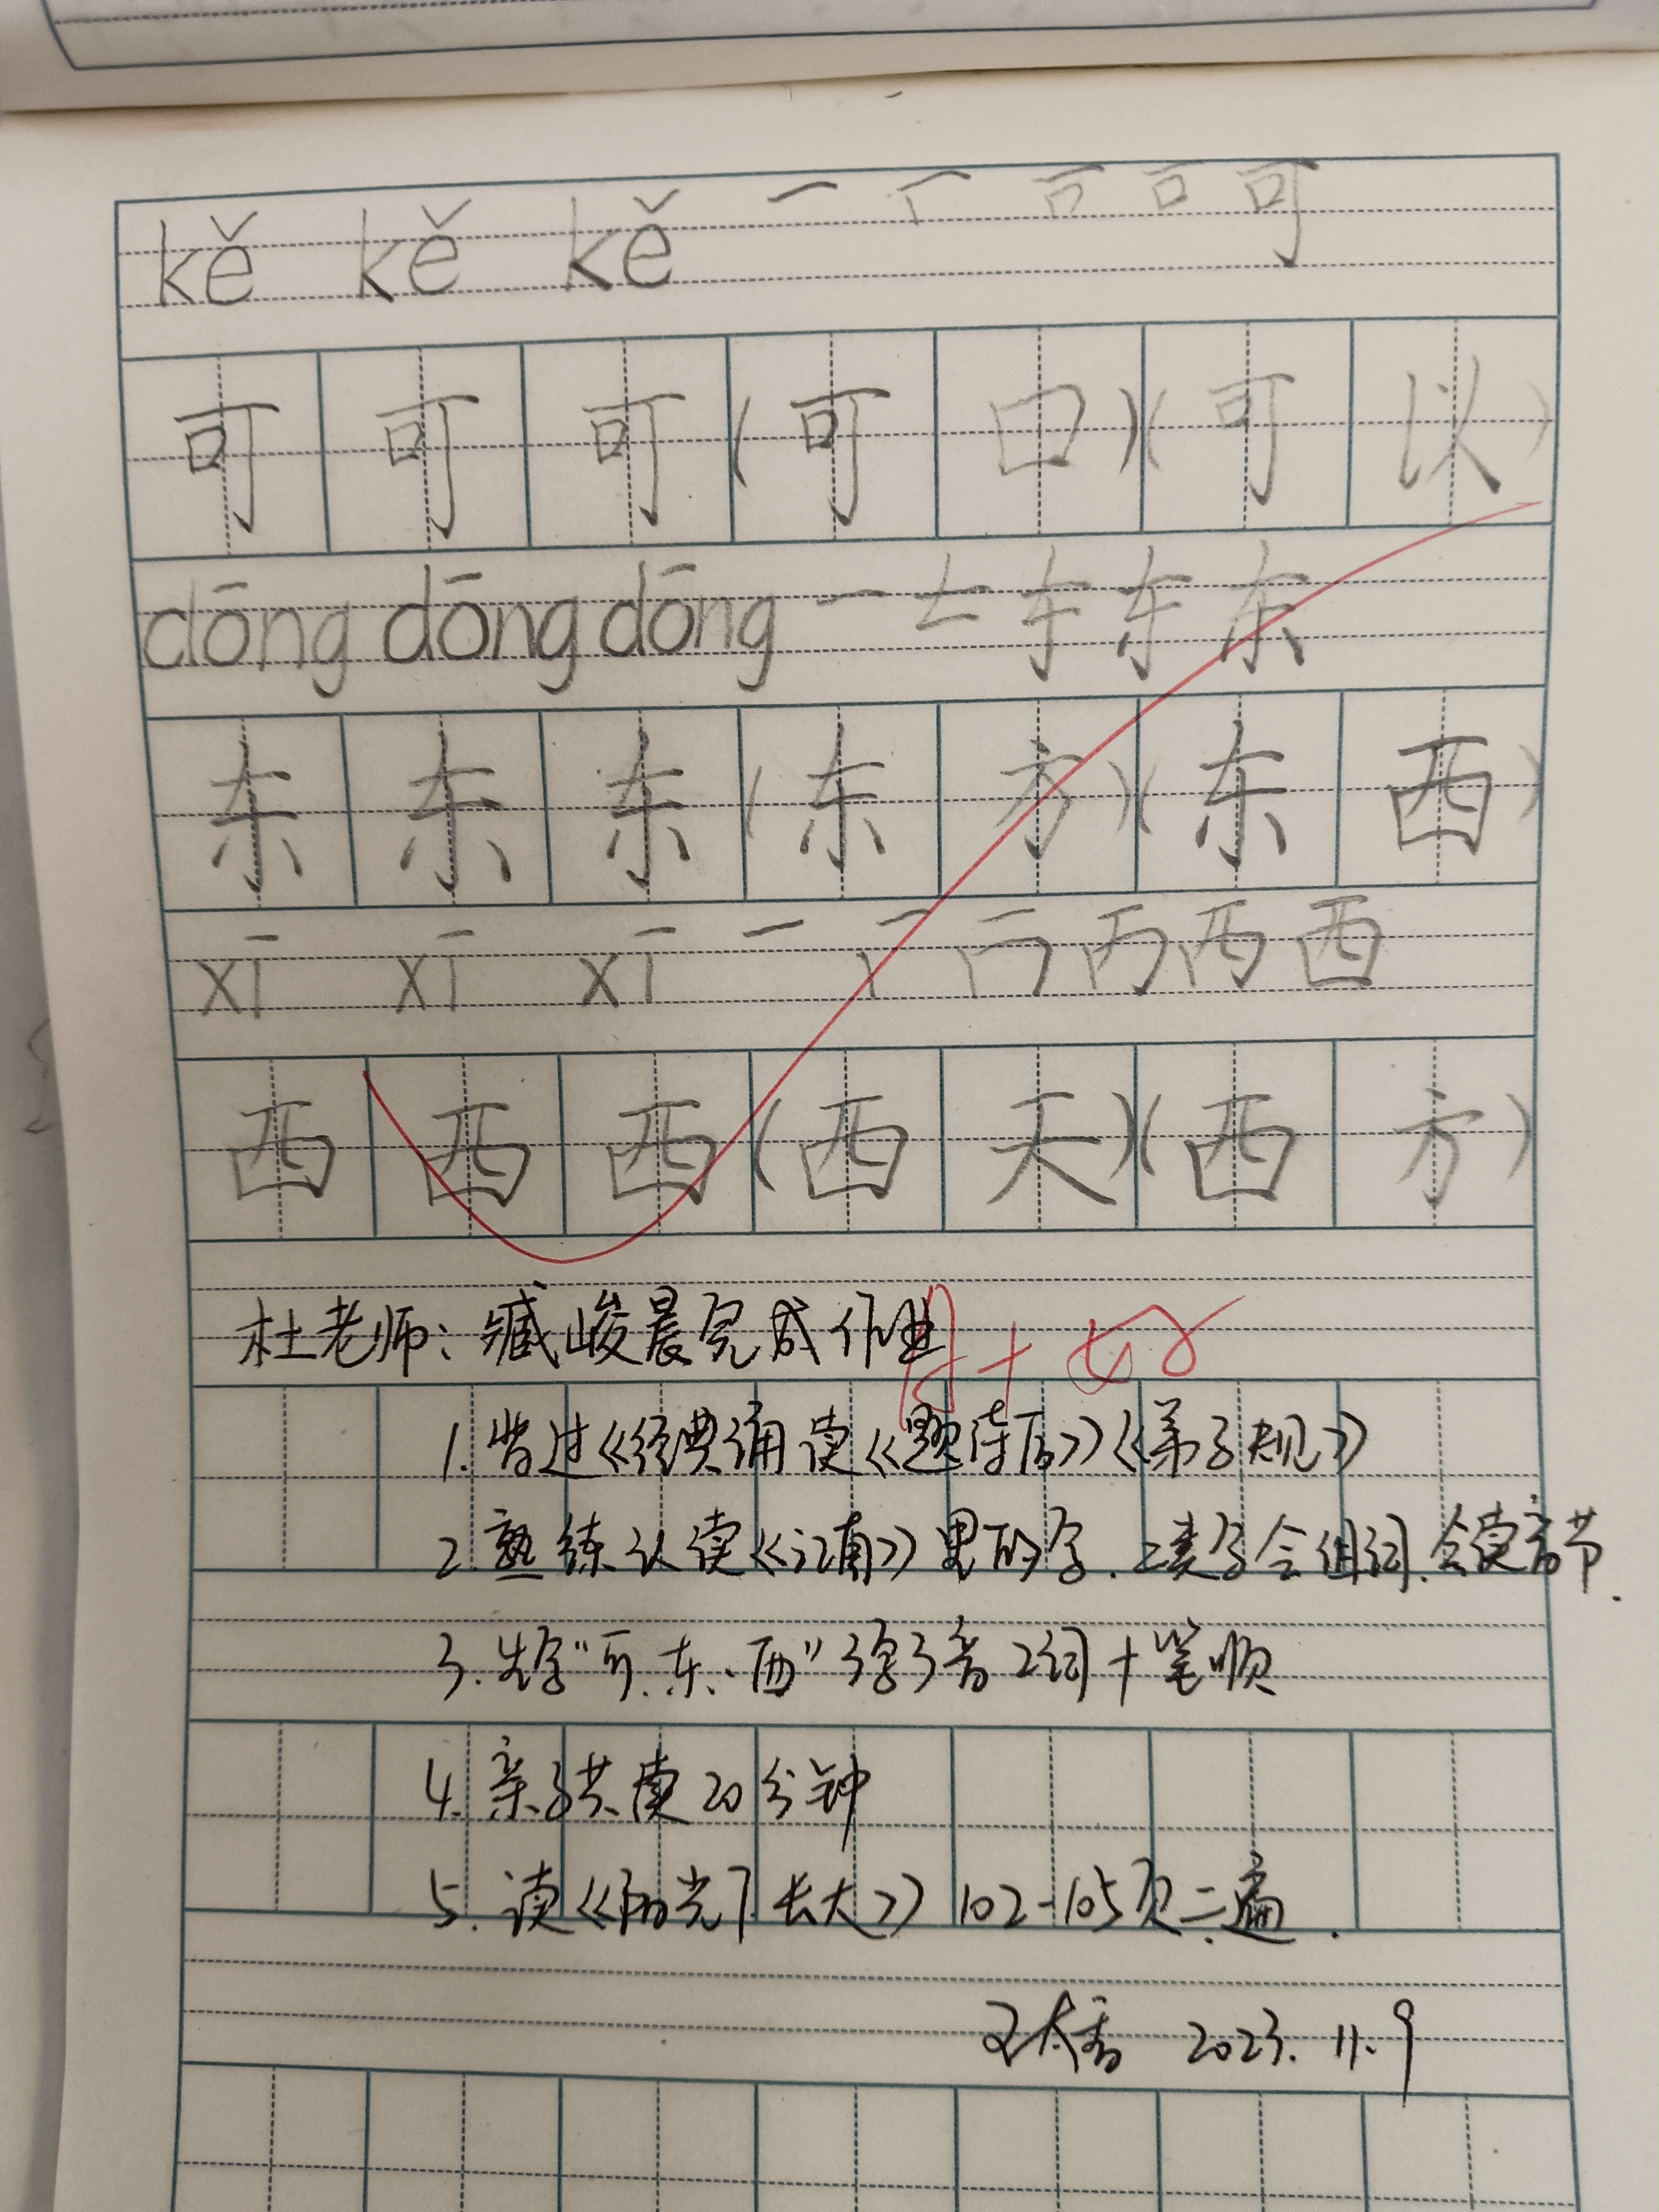 kě kě kě 一 丆 可
可 可 可 (可 口)(可 以)
dōng dōng dōng 一 东 东
东 东 东 (东 方)(东 西)
xī xī xī 一 丆 西
西 西 西 (西 天)(西 方)
杜老师:臧峻晨完成作业
A+ 好
1.背过《经典诵读《题侍后》《弟子规》
2.熟练认读《江南》里的字.二类字会组词.会读音节.
3.生字“可.东、西”3字3音2词+笔顺
4.亲子共读20分钟
5.读《阳光下长大》102-105页二遍.
2023.11.9